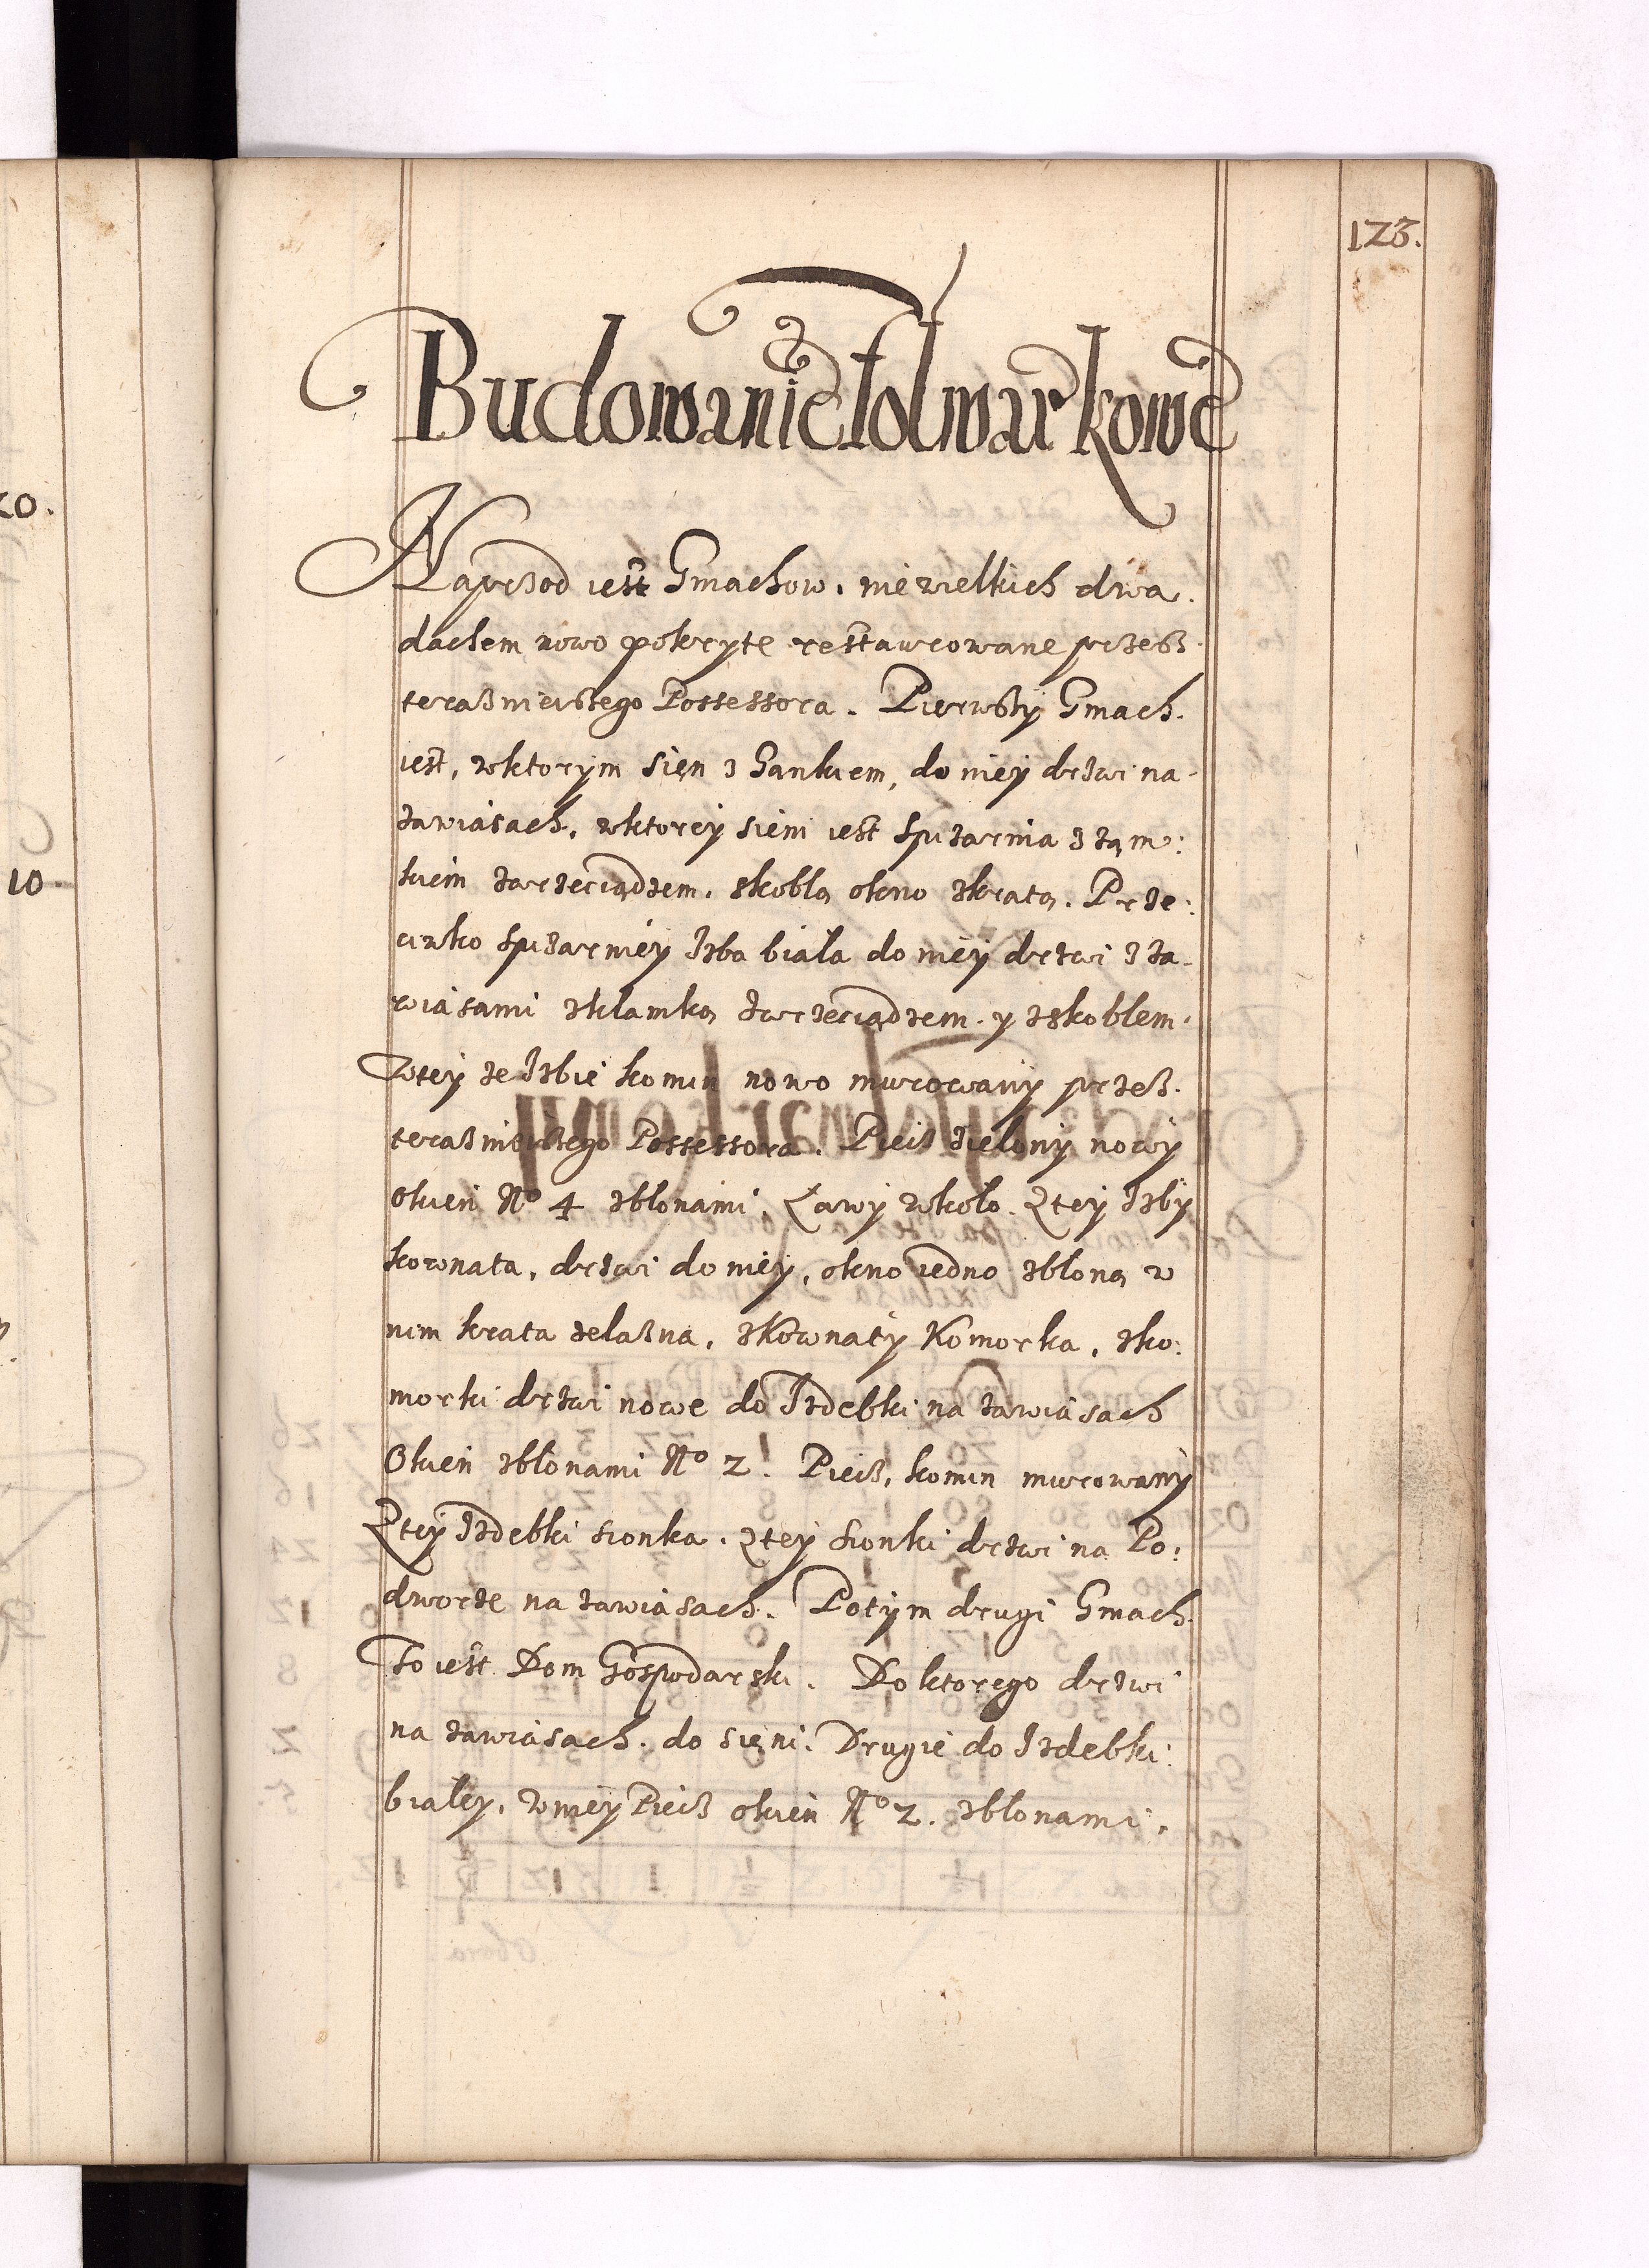 123.
Budowanie folwarkowe
Naprzod iest Gmachow. niewielkich dwa.
dachem nowo pokryte restaurowane przesz.
teraznieiszego Possessora. Pierwszy Gmach.
iest, wktorym Sien z Gankiem, do niey drzwi na
zawiasach. wktorey sieni iest spizarnia z zam:
kiem zwrzeciądzem. skoblą okno zkratą. Prze:
ciwko spizarniey Izba biała do niey drzwi z za-
wiasami zklamką zwrzeciądzem. y zskoblem.
Wtey ze Izbie komin nowo murowany przesz.
teraznieiszego Possessora. Piec zielony nowy
Okien No 4 zblonami. Ławy wkoło. Ztey Izby
kownata, drzwi do niey, okno iedno zbloną w
nim krata zelazna. zkownaty Komorka. zko:
morki drzwi nowe do Izdebki na zawiasach
Okien zblonami No 2. Piec, komin murowany
Ztey Izdebki sionka. Ztey sionki drzwi na Po:
dworze na zawiasach. Potym drugi Gmach.
To iest Dom Gospodarski. Do ktorego drzwi
na zawiasach. do sieni. Drugie do Izdebki:
białey. wniey Piec okien No 2. zblonami.
10.